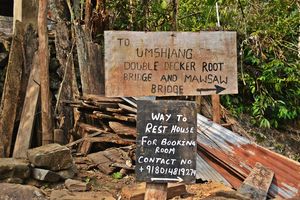 TO
UMSHIANG
DOUBLE DECKER ROOT
BRIDGE AND MAWSAW
BRIDGE
WAY TO
REST HOUSE
FOR BOOKING
ROOM
CONTACT NO
+918014819274